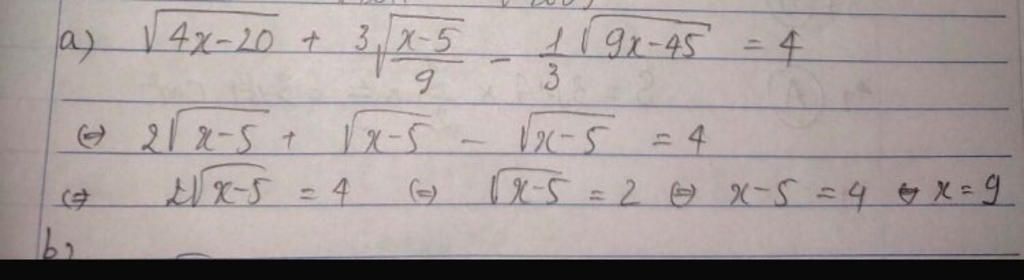 a) √(4x-20) + 3√((x-5)/9) - 1/3 √(9x-45) = 4
(⇔) 2√(x-5) + √(x-5) - √(x-5) = 4
(⇒ 2√(x-5) = 4 (=) √(x-5) = 2 ⇔ x-5 = 4 ⇔ x = 9
b)